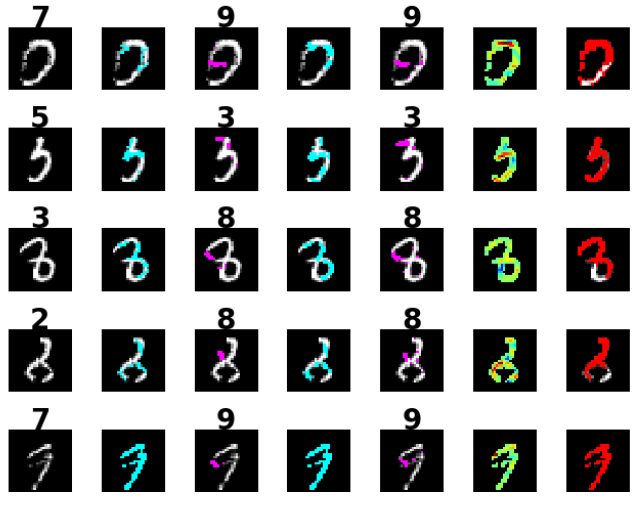 7 9 9
5 3 3
3 8 8
2 8 8
7 9 9